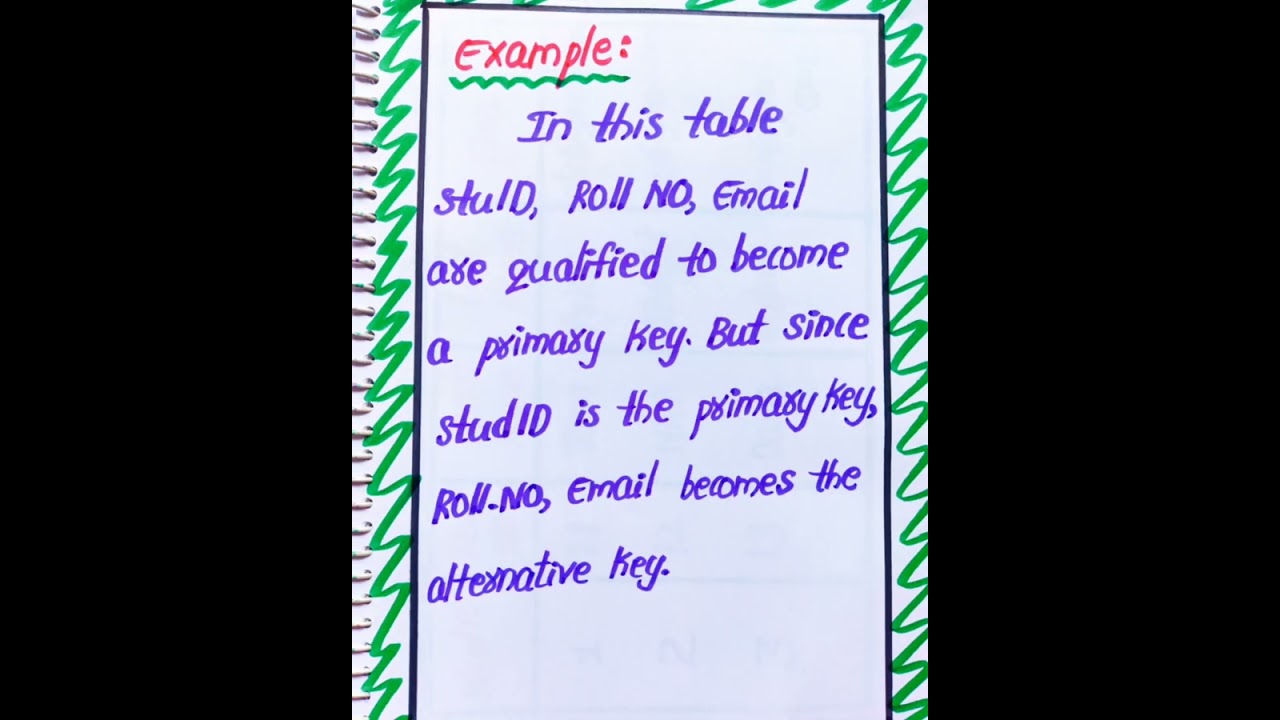 Example:
In this table
stuID, Roll NO, Email
are qualified to become
a primary key. But since
studID is the primary key,
Roll-NO, Email becomes the
alternative key.